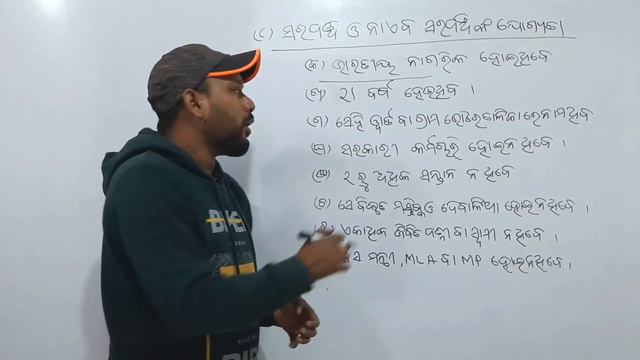 (୯) ସରପଞ୍ଚ ଓ ନାଏବ ସରପଞ୍ଚଙ୍କ ଯୋଗ୍ୟତା
(କ) ଭାରତୀୟ ନାଗରିକ ହୋଇଥିବେ
(ଖ) ୨୧ ବର୍ଷ ହୋଇଥିବ ।
(ଗ) ସେହି ୱାର୍ଡ ବା ଗ୍ରାମ ଭୋଟର ତାଲିକାରେ ନାମ ଥିବ
(ଘ) ସରକାରୀ କର୍ମଚାରି ହୋଇନଥିବେ ।
(ଙ) ୨ ରୁ ଅଧିକ ସନ୍ତାନ ନ ଥିବେ
(ଚ) ସେ ବିକୃତ ମସ୍ତିଷ୍କ ଏ ଦେବାଳିଆ ହୋଇନଥିବେ ।
ଏକାଧିକ ଜୀବିତ ପତ୍ନୀ ବା ସ୍ୱାମୀ ନଥିବେ ।
ସେ ମନ୍ତ୍ରୀ, MLA ବା MP ହୋଇନଥିବେ ।